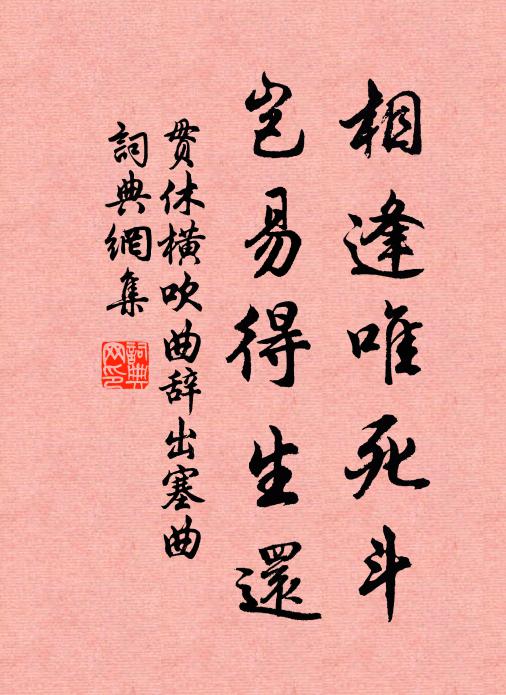 相逢唯死斗
岂易得生還
贯休橫吹曲辞出塞曲
詞典網集
詞典网印